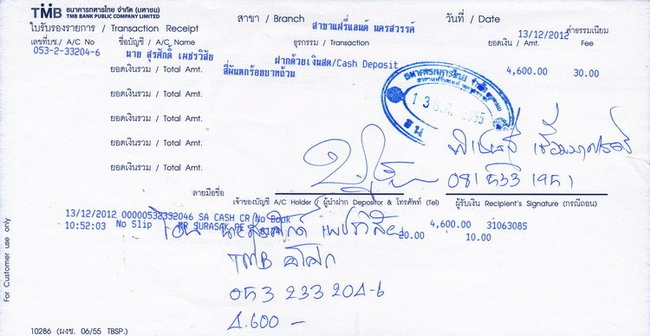 TMB ธนาคารทหารไทย จำกัด (มหาชน)
TMB BANK PUBLIC COMPANY LIMITED
สาขา / Branch สาขาแฟรี่แลนด์ นครสวรรค์
วันที่ / Date 13/12/2012
ใบรับรองรายการ / Transaction Receipt
เลขที่บช./ A/C No ชื่อบัญชี / A/C, Name ธุรกรรม / Transaction ยอดเงิน / Amt ค่าธรรมเนียม Fee
053-2-33204-6 นาย สุรศักดิ์ เพชรวิสัย ฝากด้วยเงินสด/Cash Deposit 4,600.00 30.00
ยอดเงินรวม / Total Amt. สี่พันหกร้อยบาทถ้วน
ยอดเงินรวม / Total Amt.
ยอดเงินรวม / Total Amt.
ยอดเงินรวม / Total Amt.
ยอดเงินรวม / Total Amt.
081 533 1951
ลายมือชื่อ
เจ้าของบัญชี A/C Holder ผู้นำฝาก Depositor & โทรศัพท์ (Tel) ผู้รับเงิน Recipient's Signature (กรณีถอน)
13/12/2012 00000532332046 SA CASH CR No Book 4,600.00 3106308S
10:52:03 No Slip MR SURASAK 20.00 10.00
โอน นายสุรศักดิ์ เพชรวิสัย
TMB อโศก
053 233 204-6
4.600 –
For Customer use only
10286 (ผงช. 06/55 TBSP.)